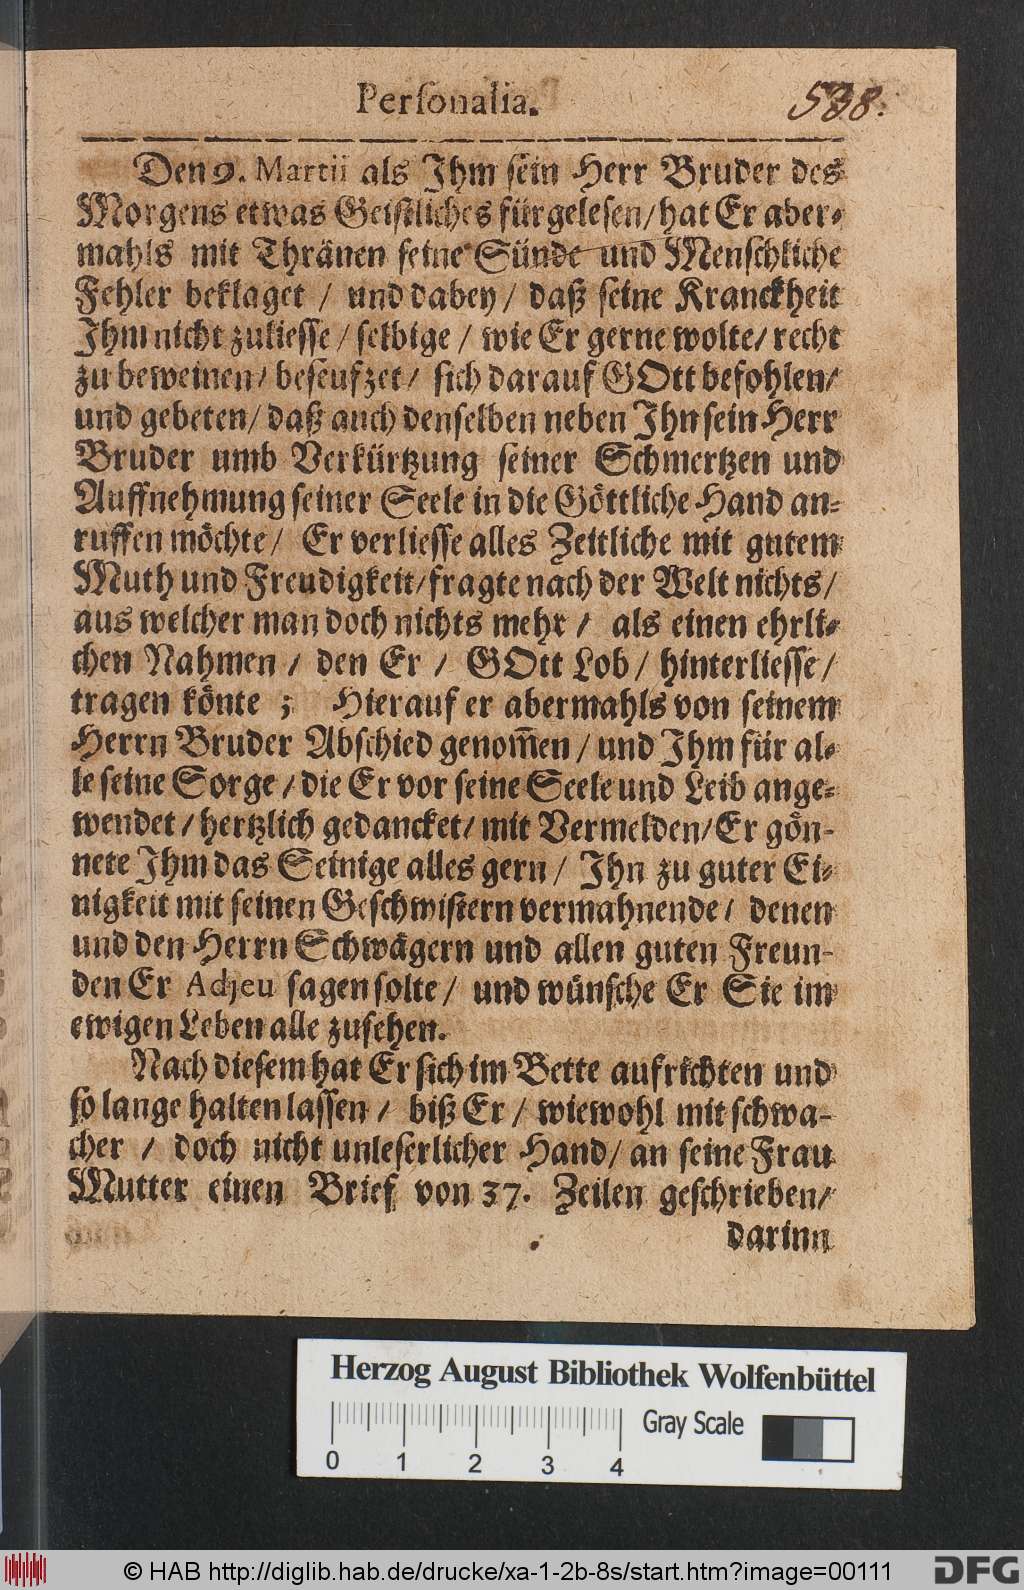 Perſonalia.
538.
Den 9. Martii als Ihm ſein Herr Bruder des
Morgens etwas Geiſtliches fürgeleſen/ hat Er aber-
mahls mit Thränen ſeine Sünde und Menſchliche
Fehler beklaget / und dabey / daß ſeine Kranckheit
Ihm nicht zulieſſe / ſelbige / wie Er gerne wolte/ recht
zu beweinen/ beſeufzet/ ſich darauf GOtt befohlen/
und gebeten/ daß auch denſelben neben Ihn ſein Herr
Bruder umb Verkürtzung ſeiner Schmertzen und
Auffnehmung ſeiner Seele in die Göttliche Hand an-
ruffen möchte/ Er verlieſſe alles Zeitliche mit gutem
Muth und Freudigkeit/ fragte nach der Welt nichts/
aus welcher man doch nichts mehr / als einen ehrli-
chen Nahmen / den Er / GOtt Lob / hinterlieſſe /
tragen könte ; Hierauf er abermahls von ſeinem
Herrn Bruder Abſchied genom̃en / und Ihm für al-
le ſeine Sorge / die Er vor ſeine Seele und Leib ange-
wendet / hertzlich gedancket/ mit Vermelden/ Er gön-
nete Ihm das Seinige alles gern / Ihn zu guter Ei-
nigkeit mit ſeinen Geſchwiſtern vermahnende / denen
und den Herrn Schwägern und allen guten Freun-
den Er Adjeu ſagen ſolte / und wünſche Er Sie im
ewigen Leben alle zuſehen.
Nach dieſem hat Er ſich im Bette aufrichten und
ſo lange halten laſſen / biß Er / wiewohl mit ſchwa-
cher / doch nicht unleſerlicher Hand/ an ſeine Frau
Mutter einen Brief von 37. Zeilen geſchrieben/
darinn
Herzog August Bibliothek Wolfenbüttel
Gray Scale
0 1 2 3 4
© HAB http://diglib.hab.de/drucke/xa-1-2b-8s/start.htm?image=00111
DFG